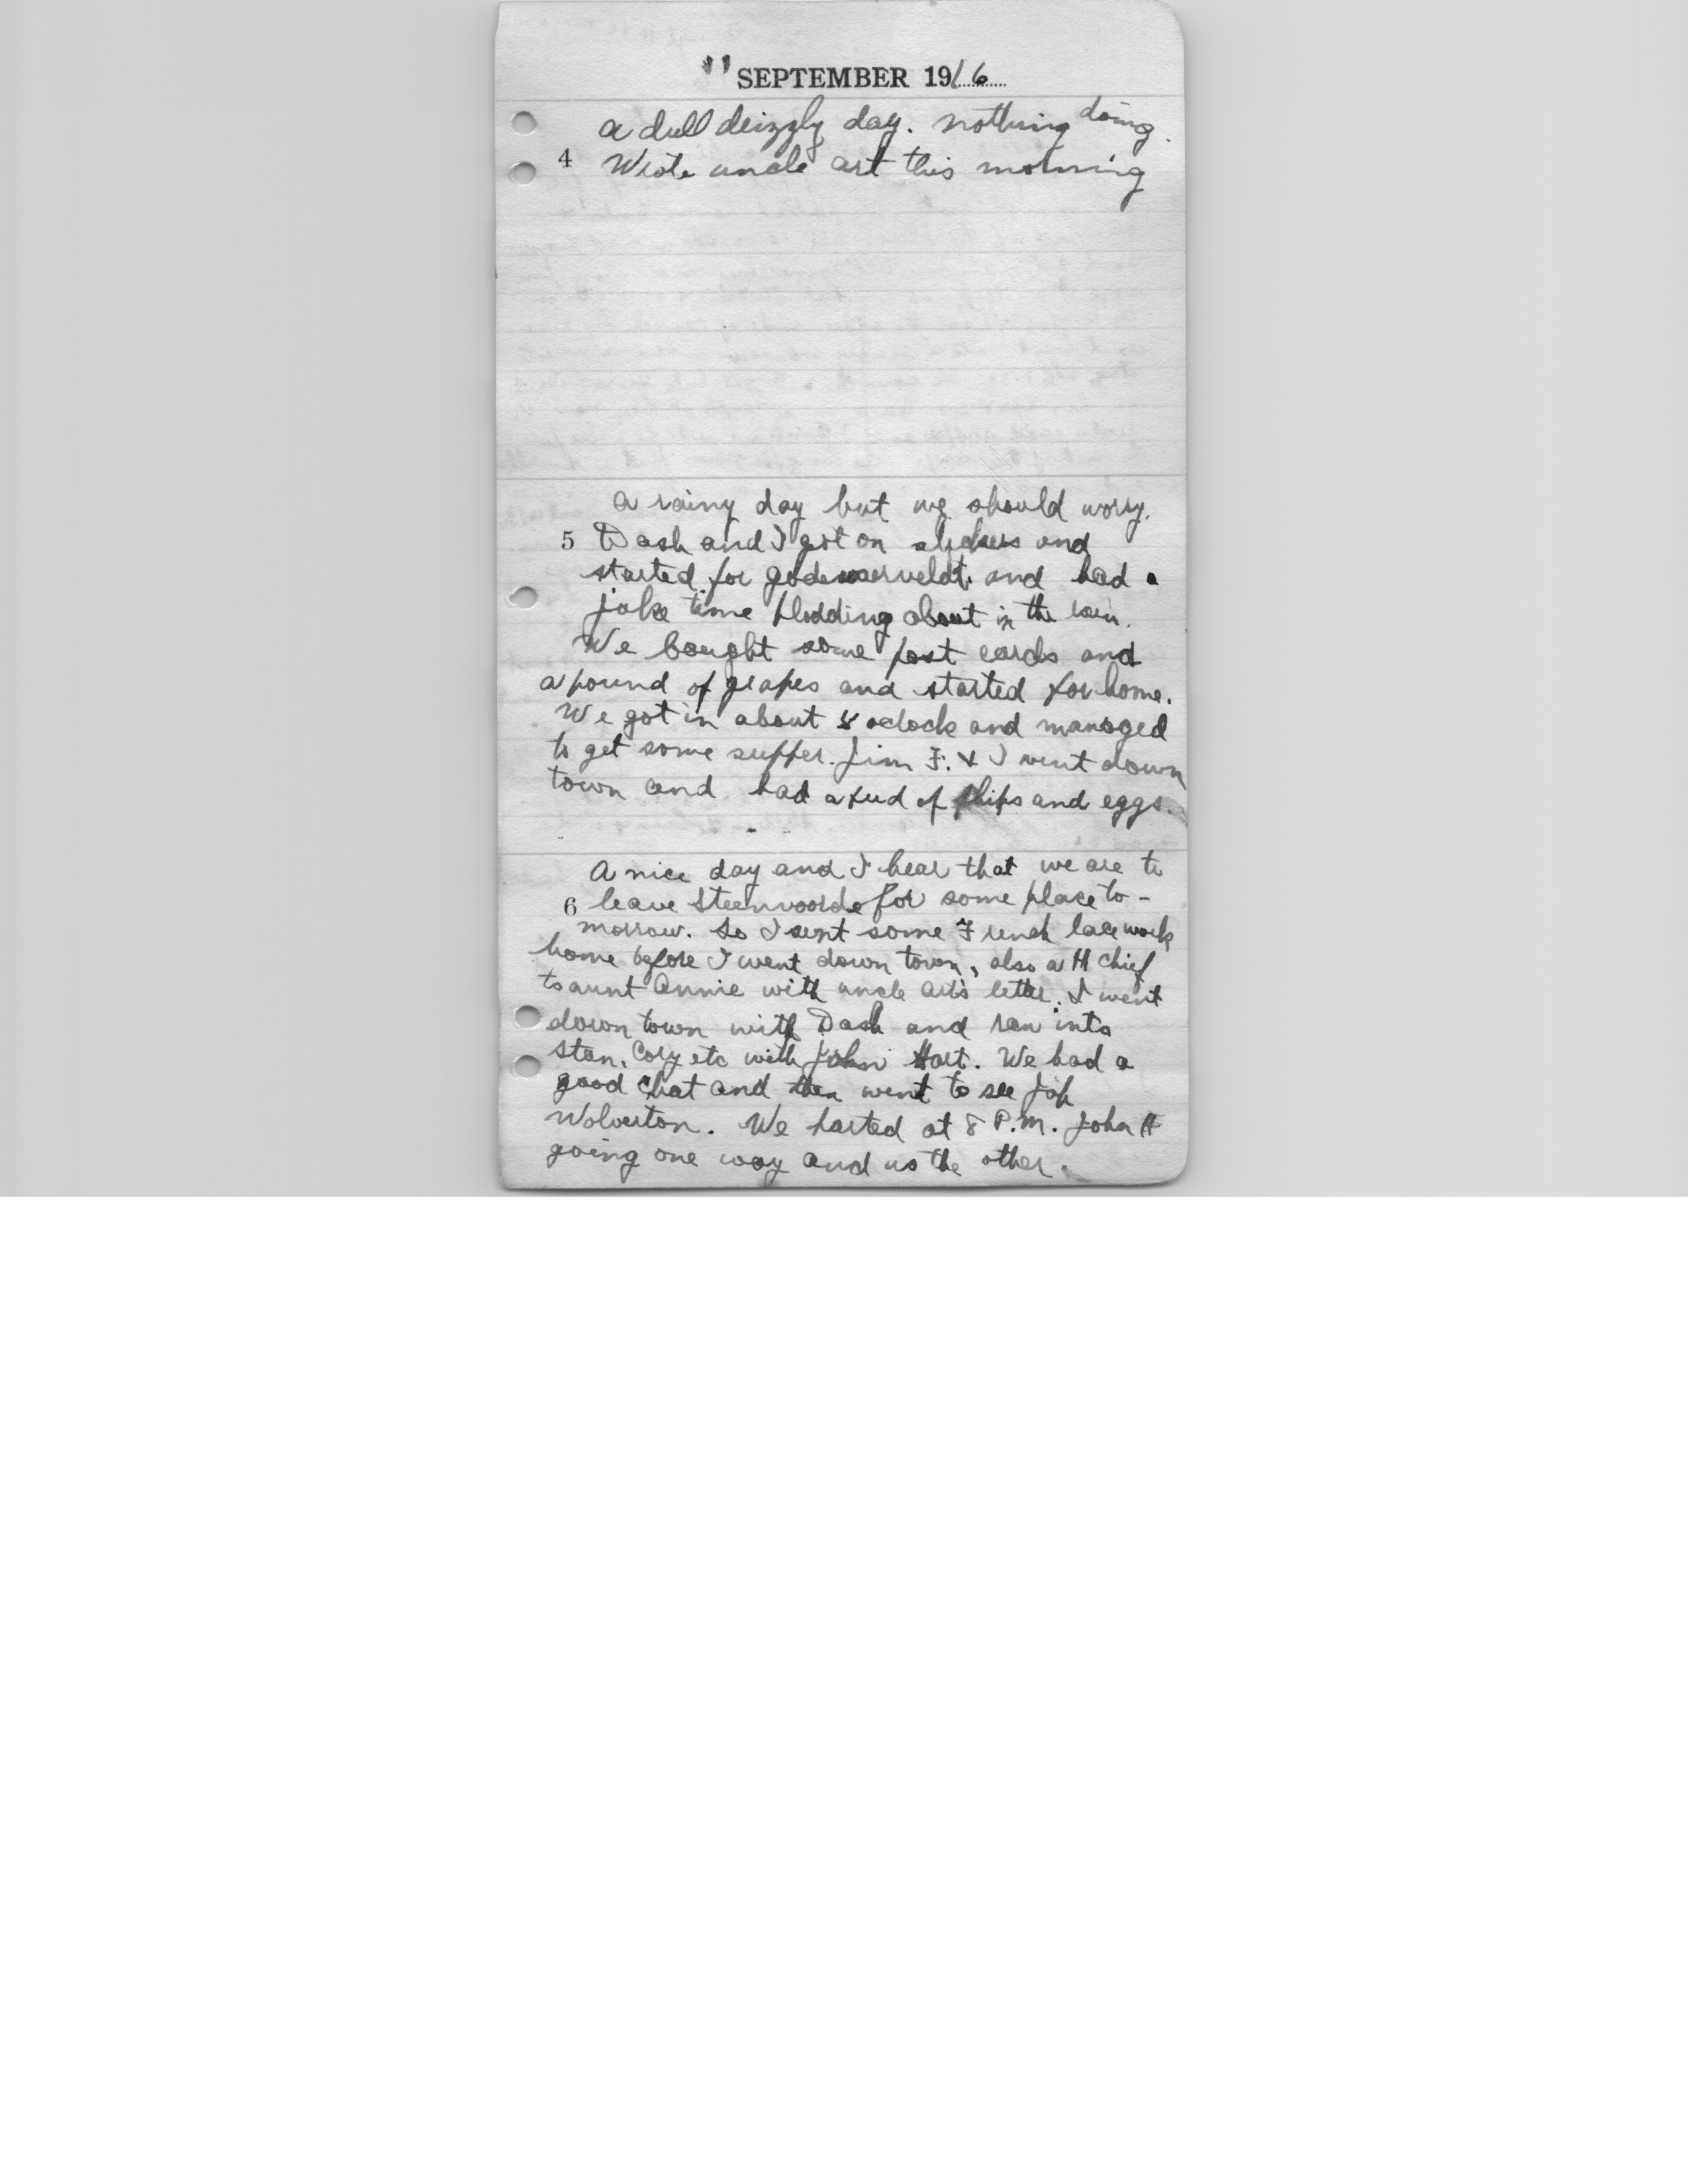 " SEPTEMBER 1916
a dull drizzly day. nothing doing.
4 Wrote uncle art this morning
a rainy day but we should worry.
5 Dash and I got on slickers and
started for godewaersveldt. and had a
joke time plodding about in the rain.
We bought some post cards and
a pound of grapes and started for home.
We got in about 8 oclock and managed
to get some supper. Jim F. & I went down
town and had a feed of chips and eggs.
A nice day and I hear that we are to
6 leave Steenvoorde for some place to-
morrow. So I sent some French lace work
home before I went down town, also a H chief
to aunt Annie with uncle art's letter. I went
down town with Dash and ran into
Stan, Cory etc with John Hart. We had a
good chat and then went to see
Wolverton. We parted at 8 P.M. John H
going one way and us the other.